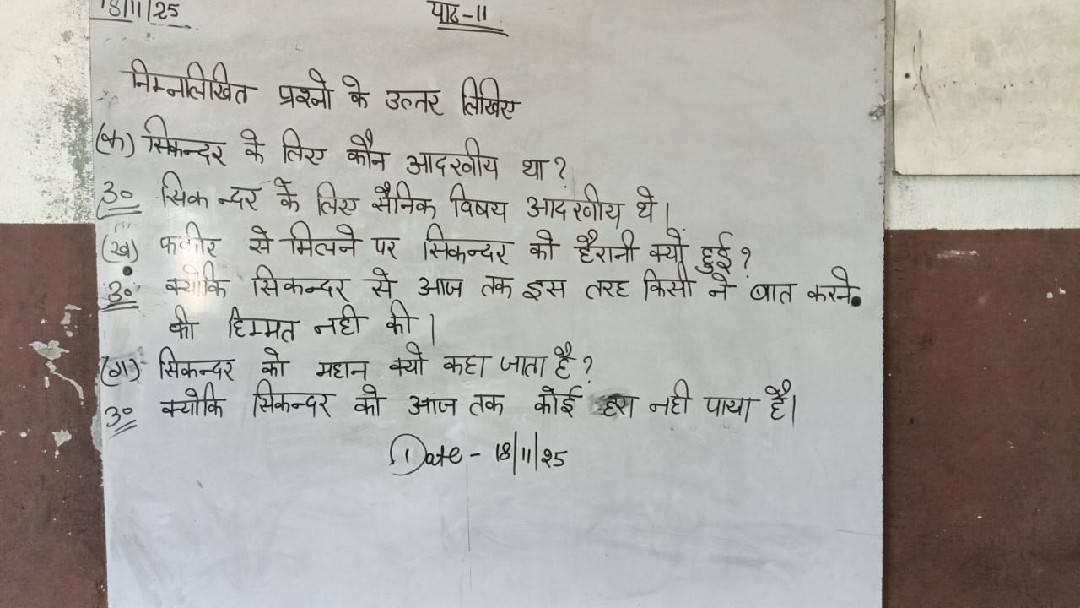 18/11/25
पाठ-11
निम्नलिखित प्रश्नो के उत्तर लिखिए
(क) सिकन्दर के लिए कौन आदरणीय था?
उ० सिकन्दर के लिए सैनिक विषय आदरणीय थे।
(ख) फकीर से मिलने पर सिकन्दर को हैरानी क्यों हुई?
उ० क्योकि सिकन्दर से आज तक इस तरह किसी ने बात करने
की हिम्मत नही की।
(ग) सिकन्दर को महान क्यो कहा जाता है?
उ० क्योकि सिकन्दर को आज तक कोई हरा नही पाया है।
Date - 18/11/25